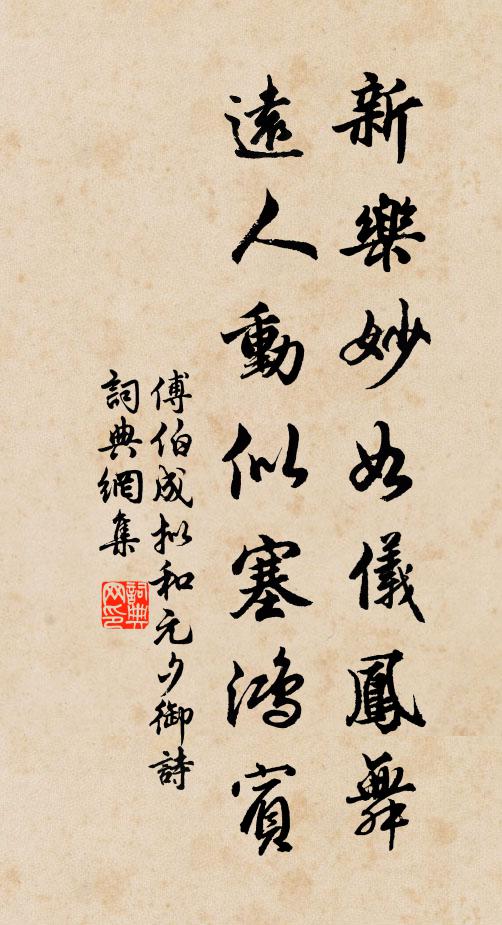 新樂妙如儀鳳舞
遠人動似塞鴻賓
傅伯成擬和元夕御詩
詞典網集
詞典
网印